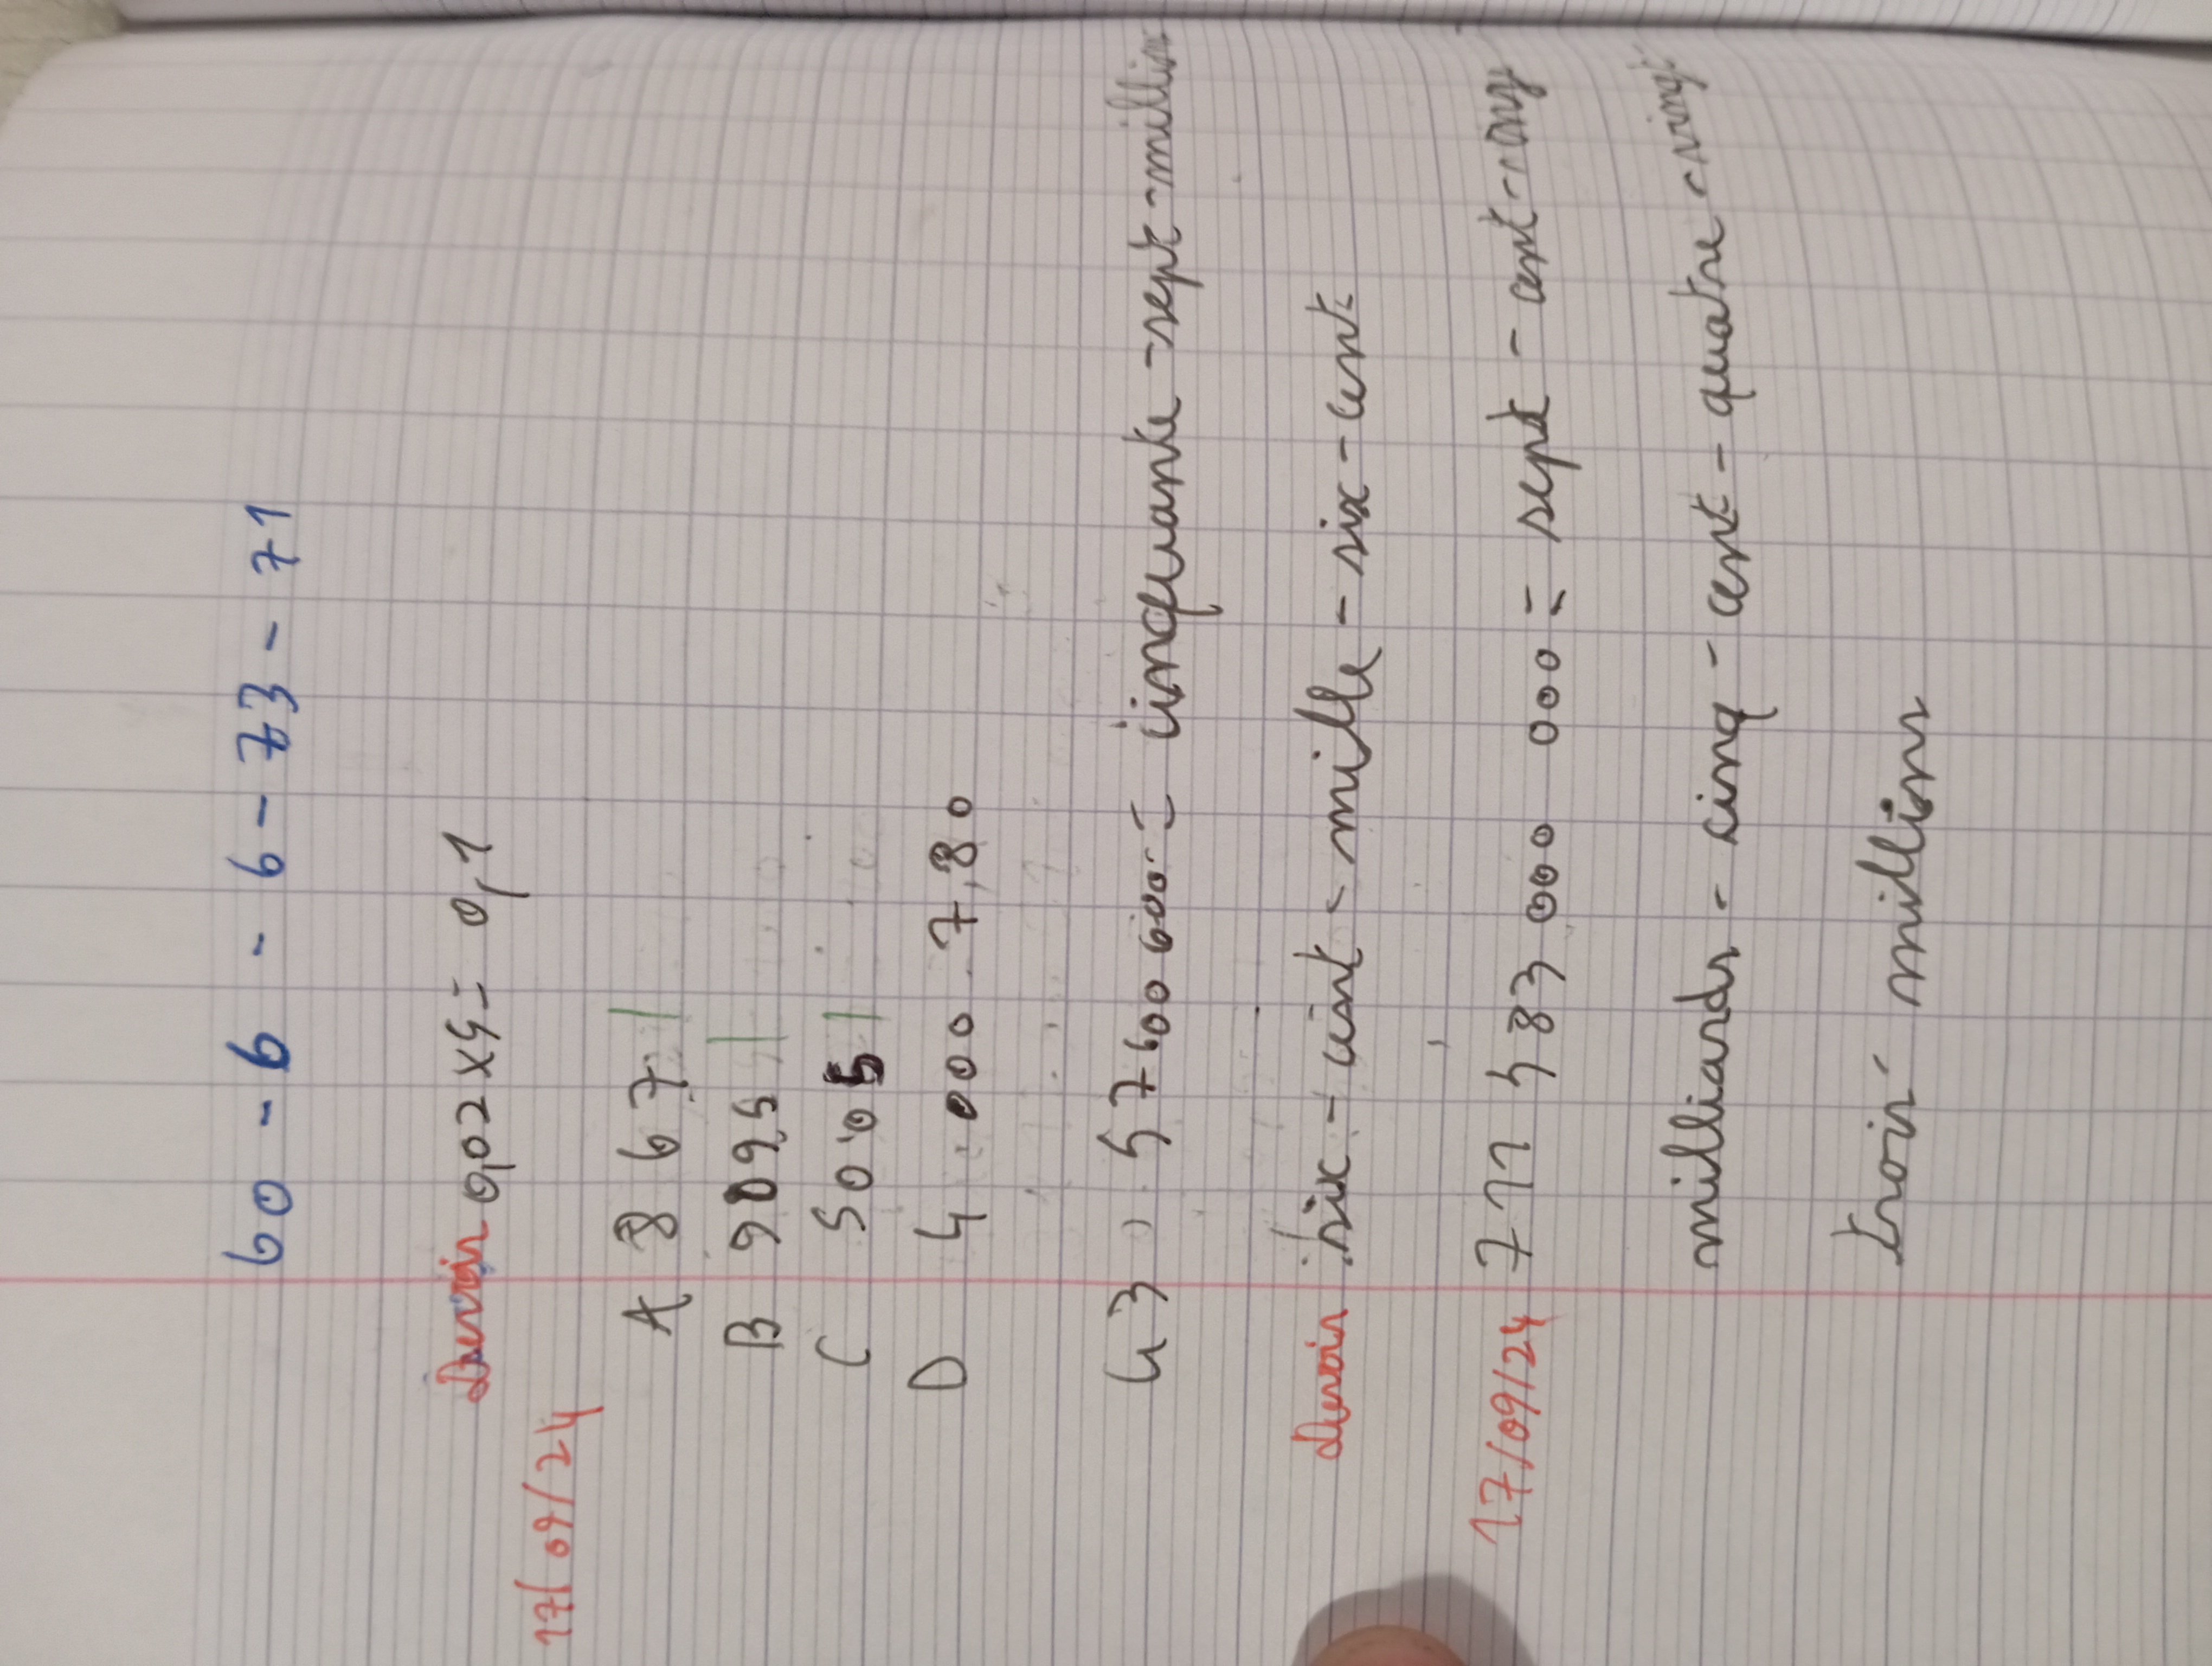 60 - 6 - 6 - 73 - 71
Devoir 0,02 x 5 = 0,1
17/09/24
A 8 6 7
B 9095
C 5005
D 4 000 7,80
43 57 600 600 = cinquante - sept - millions
Devoir six - cent - mille - six - cent
17/09/24 711 583 000 000 = sept - cent - onze
milliards - cinq - cent - quatre - vingt
trois - millions